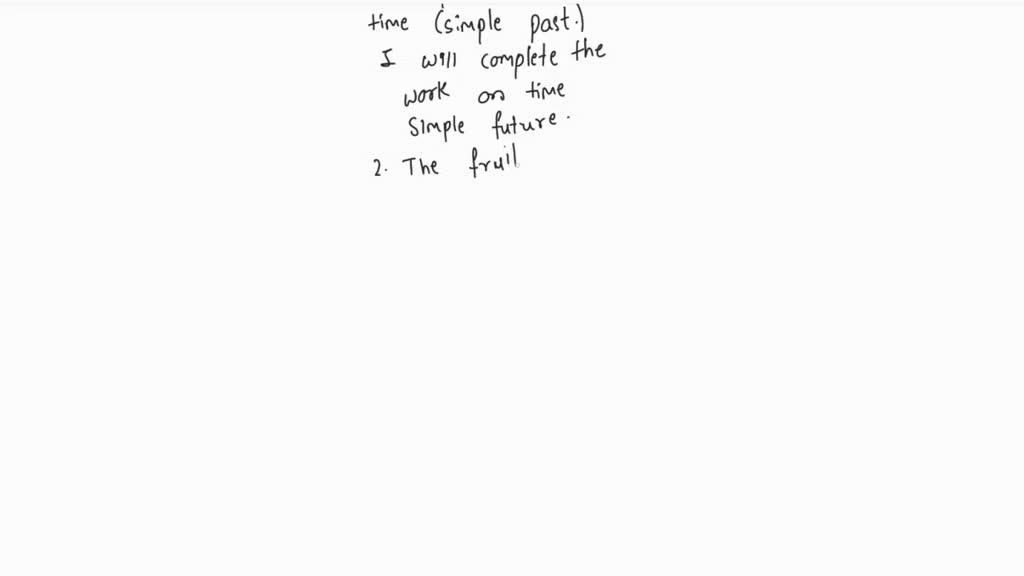 time (simple past.)
I will complete the
work on time
Simple future.
2. The fruil